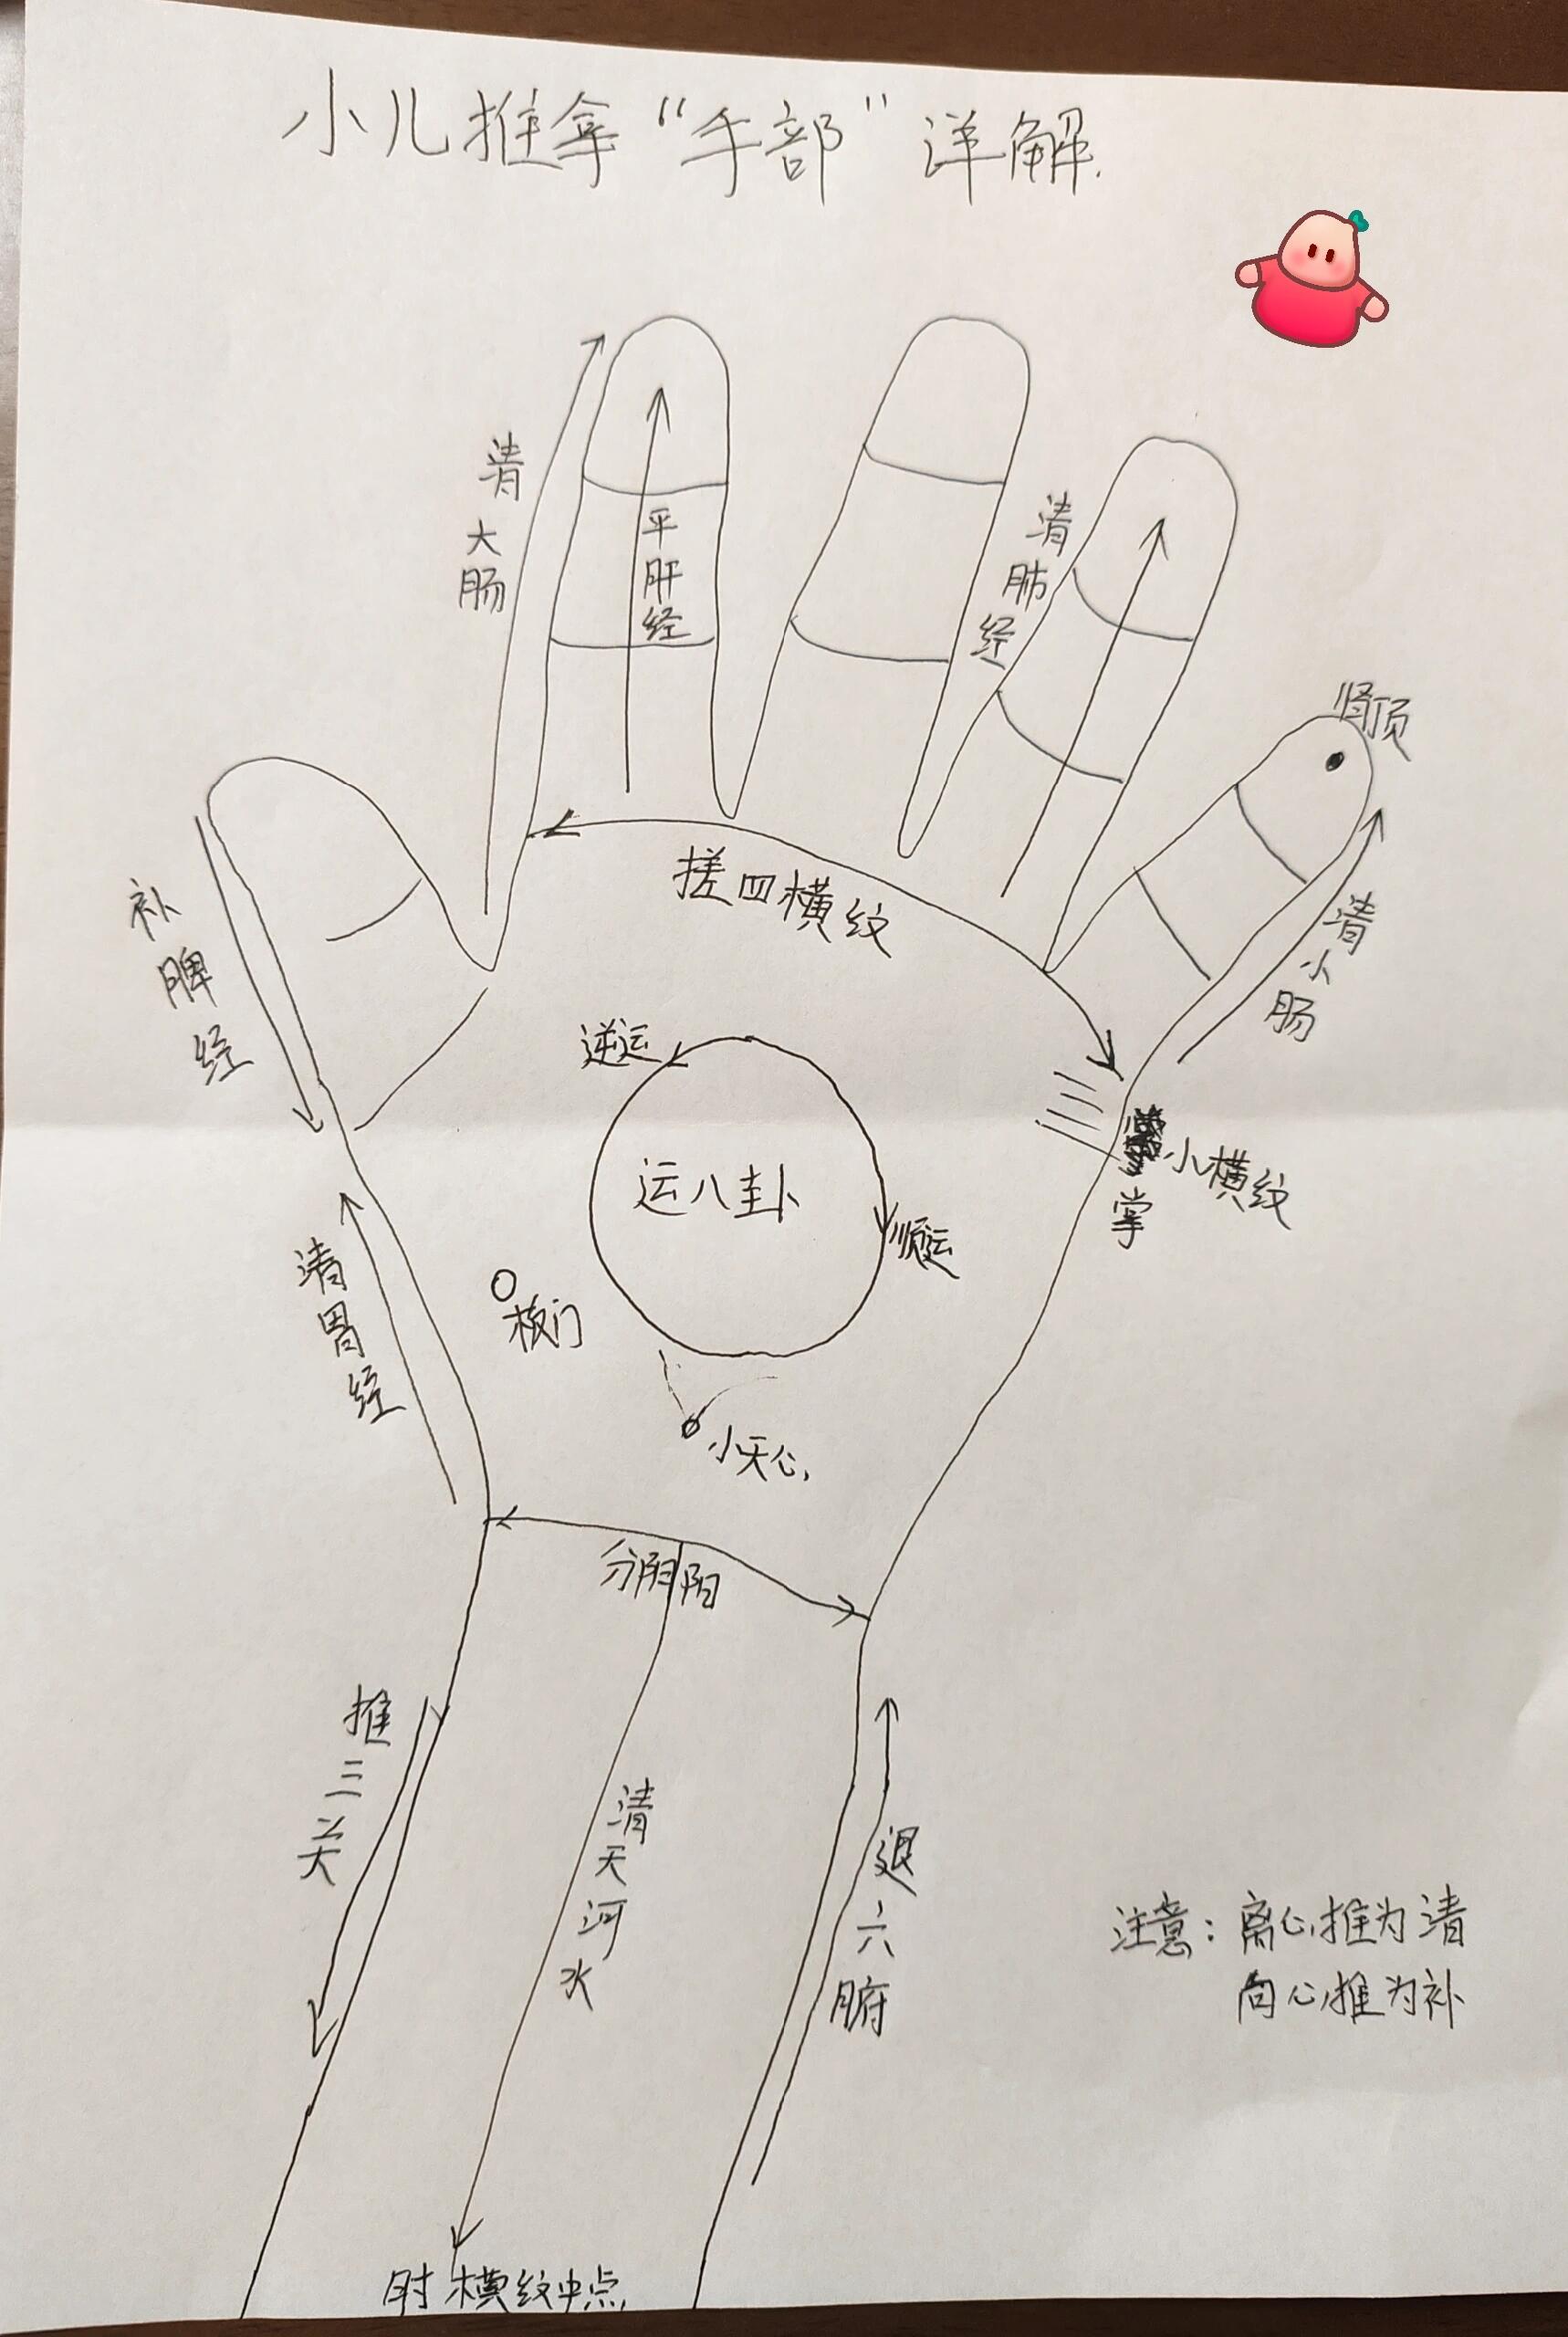 小儿推拿“手部”详解.
清大肠
平肝经
清肺经
肾顶
补脾经
搓四横纹
清小肠
逆运
运八卦
顺运
掌小横纹
清胃经
板门
小天心
分阴阳
推三关
清天河水
退六腑
注意：离心推为清
向心推为补
肘横纹中点